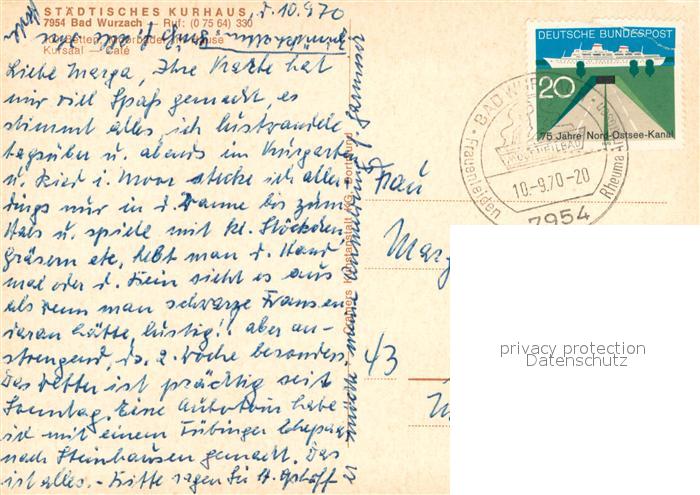 STÄDTISCHES KURHAUS
7954 Bad Wurzach – Ruf: (0 75 64) 330
Kursaal — Café
d. 10.9.70
Liebe Marga, Ihre Karte hat
mir viel Spaß gemacht, es
stimmt alles, ich lustwandle
tagsüber u. abends im Kurgarten
u. Ried i. Moor stecke ich aller
dings nur in d. Wanne bis zum
Hals u. spiele mit kl. Stöckchen
Gräsern etc, hebt man d. Hand
mal oder d. Bein sieht es aus
als wenn man schwarze Fransen
daran hätte, lustig!! aber an-
strengend, ds. 2. Woche besonders.
Das Wetter ist prächtig seit
Sonntag. Eine Autotour habe
ich mit einem Tübinger Ehepaar
nach Steinhausen gemacht. Das
ist alles. – Bitte sagen Sie H.
er möchte meine
Cramers Kunstanstalt KG, Dortmund
DEUTSCHE BUNDESPOST
20
75 Jahre Nord-Ostsee-Kanal
BAD WUR
MOORHEILBAD
Frauenleiden
Rheuma
10.-9.70-20
7954
Frau
Marg
43
privacy protection
Datenschutz